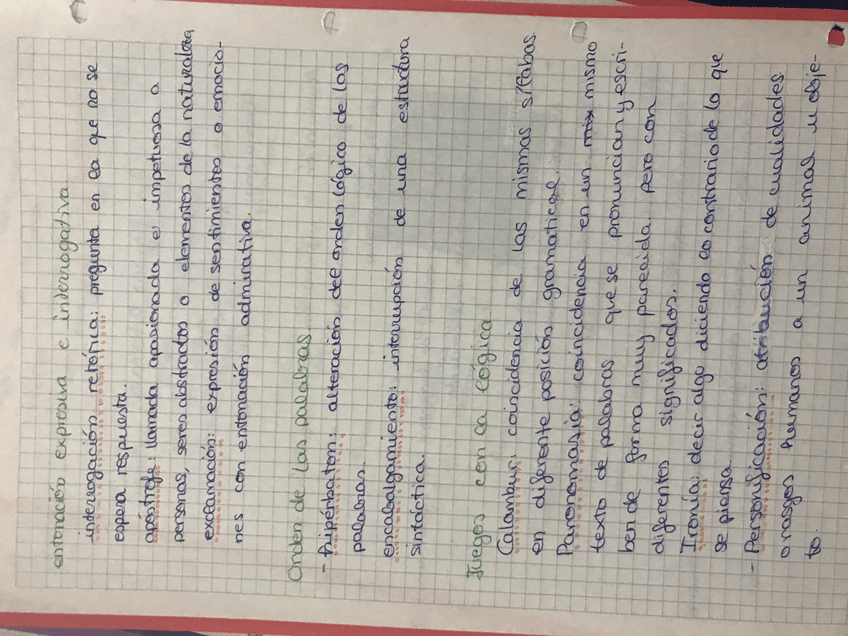 entonación expresiva e interrogativa.
interrogación retórica: pregunta en la que no se
espera respuesta.
apóstrofe: llamada apasionada e impetuosa a
personas, seres abstractos o elementos de la naturaleza
exclamación: expresión de sentimientos o emocio-
nes con entonación admirativa.
Orden de las palabras
- hipérbaton: alteración del orden lógico de las
palabras.
encabalgamiento: interrupción de una estructura
sintáctica.
Juegos con la lógica
Calambur: coincidencia de las mismas sílabas
en diferente posición gramatical.
Paronomasia: coincidencia en un mismo
texto de palabras que se pronuncian y escri-
ben de forma muy parecida pero con
diferentes significados.
Ironía: decir algo diciendo lo contrario de lo que
se piensa.
- Personificación: atribución de cualidades
o rasgos humanos a un animal u obje-
to.